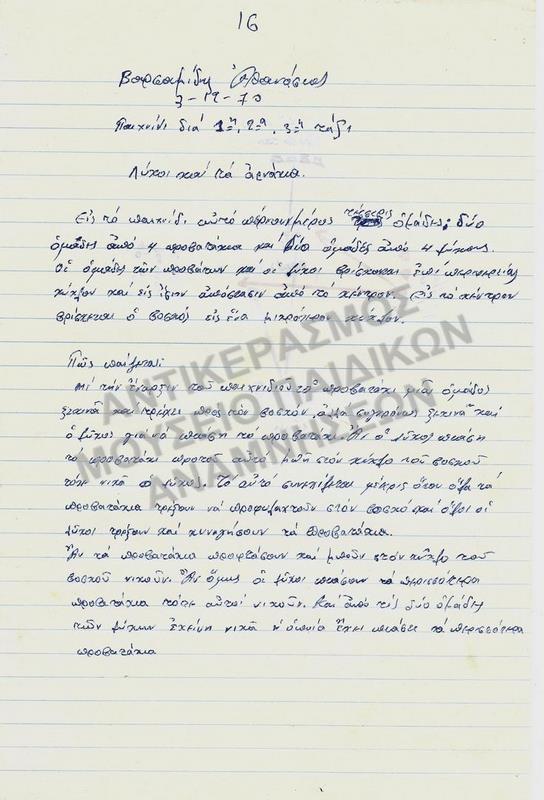 16
Βαρσαμίδης Ἀθανάσιος
3-12-70
Παιχνίδι διά 1η, 2α, 3η τάξη
Λύκοι καί τά ἀρνάκια.
Εἰς τό παιχνίδι αὐτό παίρνουν μέρος τέσσερις ὁμάδες; δύο
ὁμάδες ἀπό 4 προβατάκια καί δύο ὁμάδες ἀπό 4 λύκους.
Οἱ ὁμάδες τῶν προβάτων καί οἱ λύκοι βρίσκονται ἐπί περιφερείας
κύκλου καί εἰς ἴσην ἀπόστασιν ἀπό τό κέντρον. Εἰς τό κέντρον
βρίσκεται ὁ βοσκός εἰς ἕνα μικρότερον κύκλον.
Πῶς παίζεται:
Μέ τήν ἔναρξιν τοῦ παιχνιδιοῦ τό προβατάκι μιᾶς ὁμάδος
ξεκινᾶ καί τρέχει πρός τόν βοσκόν, ἀλλά συγχρόνως ξεκινᾶ καί
ὁ λύκος γιά νά πιάση τό προβατάκι. Ἄν ὁ λύκος πιάση
τό προβατάκι προτοῦ αὐτό μπῆ στόν κύκλο τοῦ βοσκοῦ
τότε νικᾶ ὁ λύκος. Τό αὐτό συνεχίζεται μέχρις ὅτου ὅλα τά
προβατάκια τρέξουν νά προφυλαχτοῦν στόν βοσκό καί ὅλοι οἱ
λύκοι τρέξουν καί κυνηγήσουν τά προβατάκια.
Ἄν τά προβατάκια προφτάσουν καί μποῦν στόν κύκλο τοῦ
βοσκοῦ νικοῦν. Ἄν ὅμως οἱ λύκοι πιάσουν τά περισσότερα
προβατάκια τότε αὐτοί νικοῦν. Καί ἀπό τίς δύο ὁμάδες
τῶν λύκων ἐκείνη νικᾶ ἡ ὁποία ἔχει πιάσει τά περισσότερα
προβατάκια
ΑΝΤΙΚΕΡΑΣΜΟΣ
ΜΟΥΣΕΙΟ ΠΑΙΔΙΚΩΝ
ΑΝΑΜΝΗΣΕΩΝ